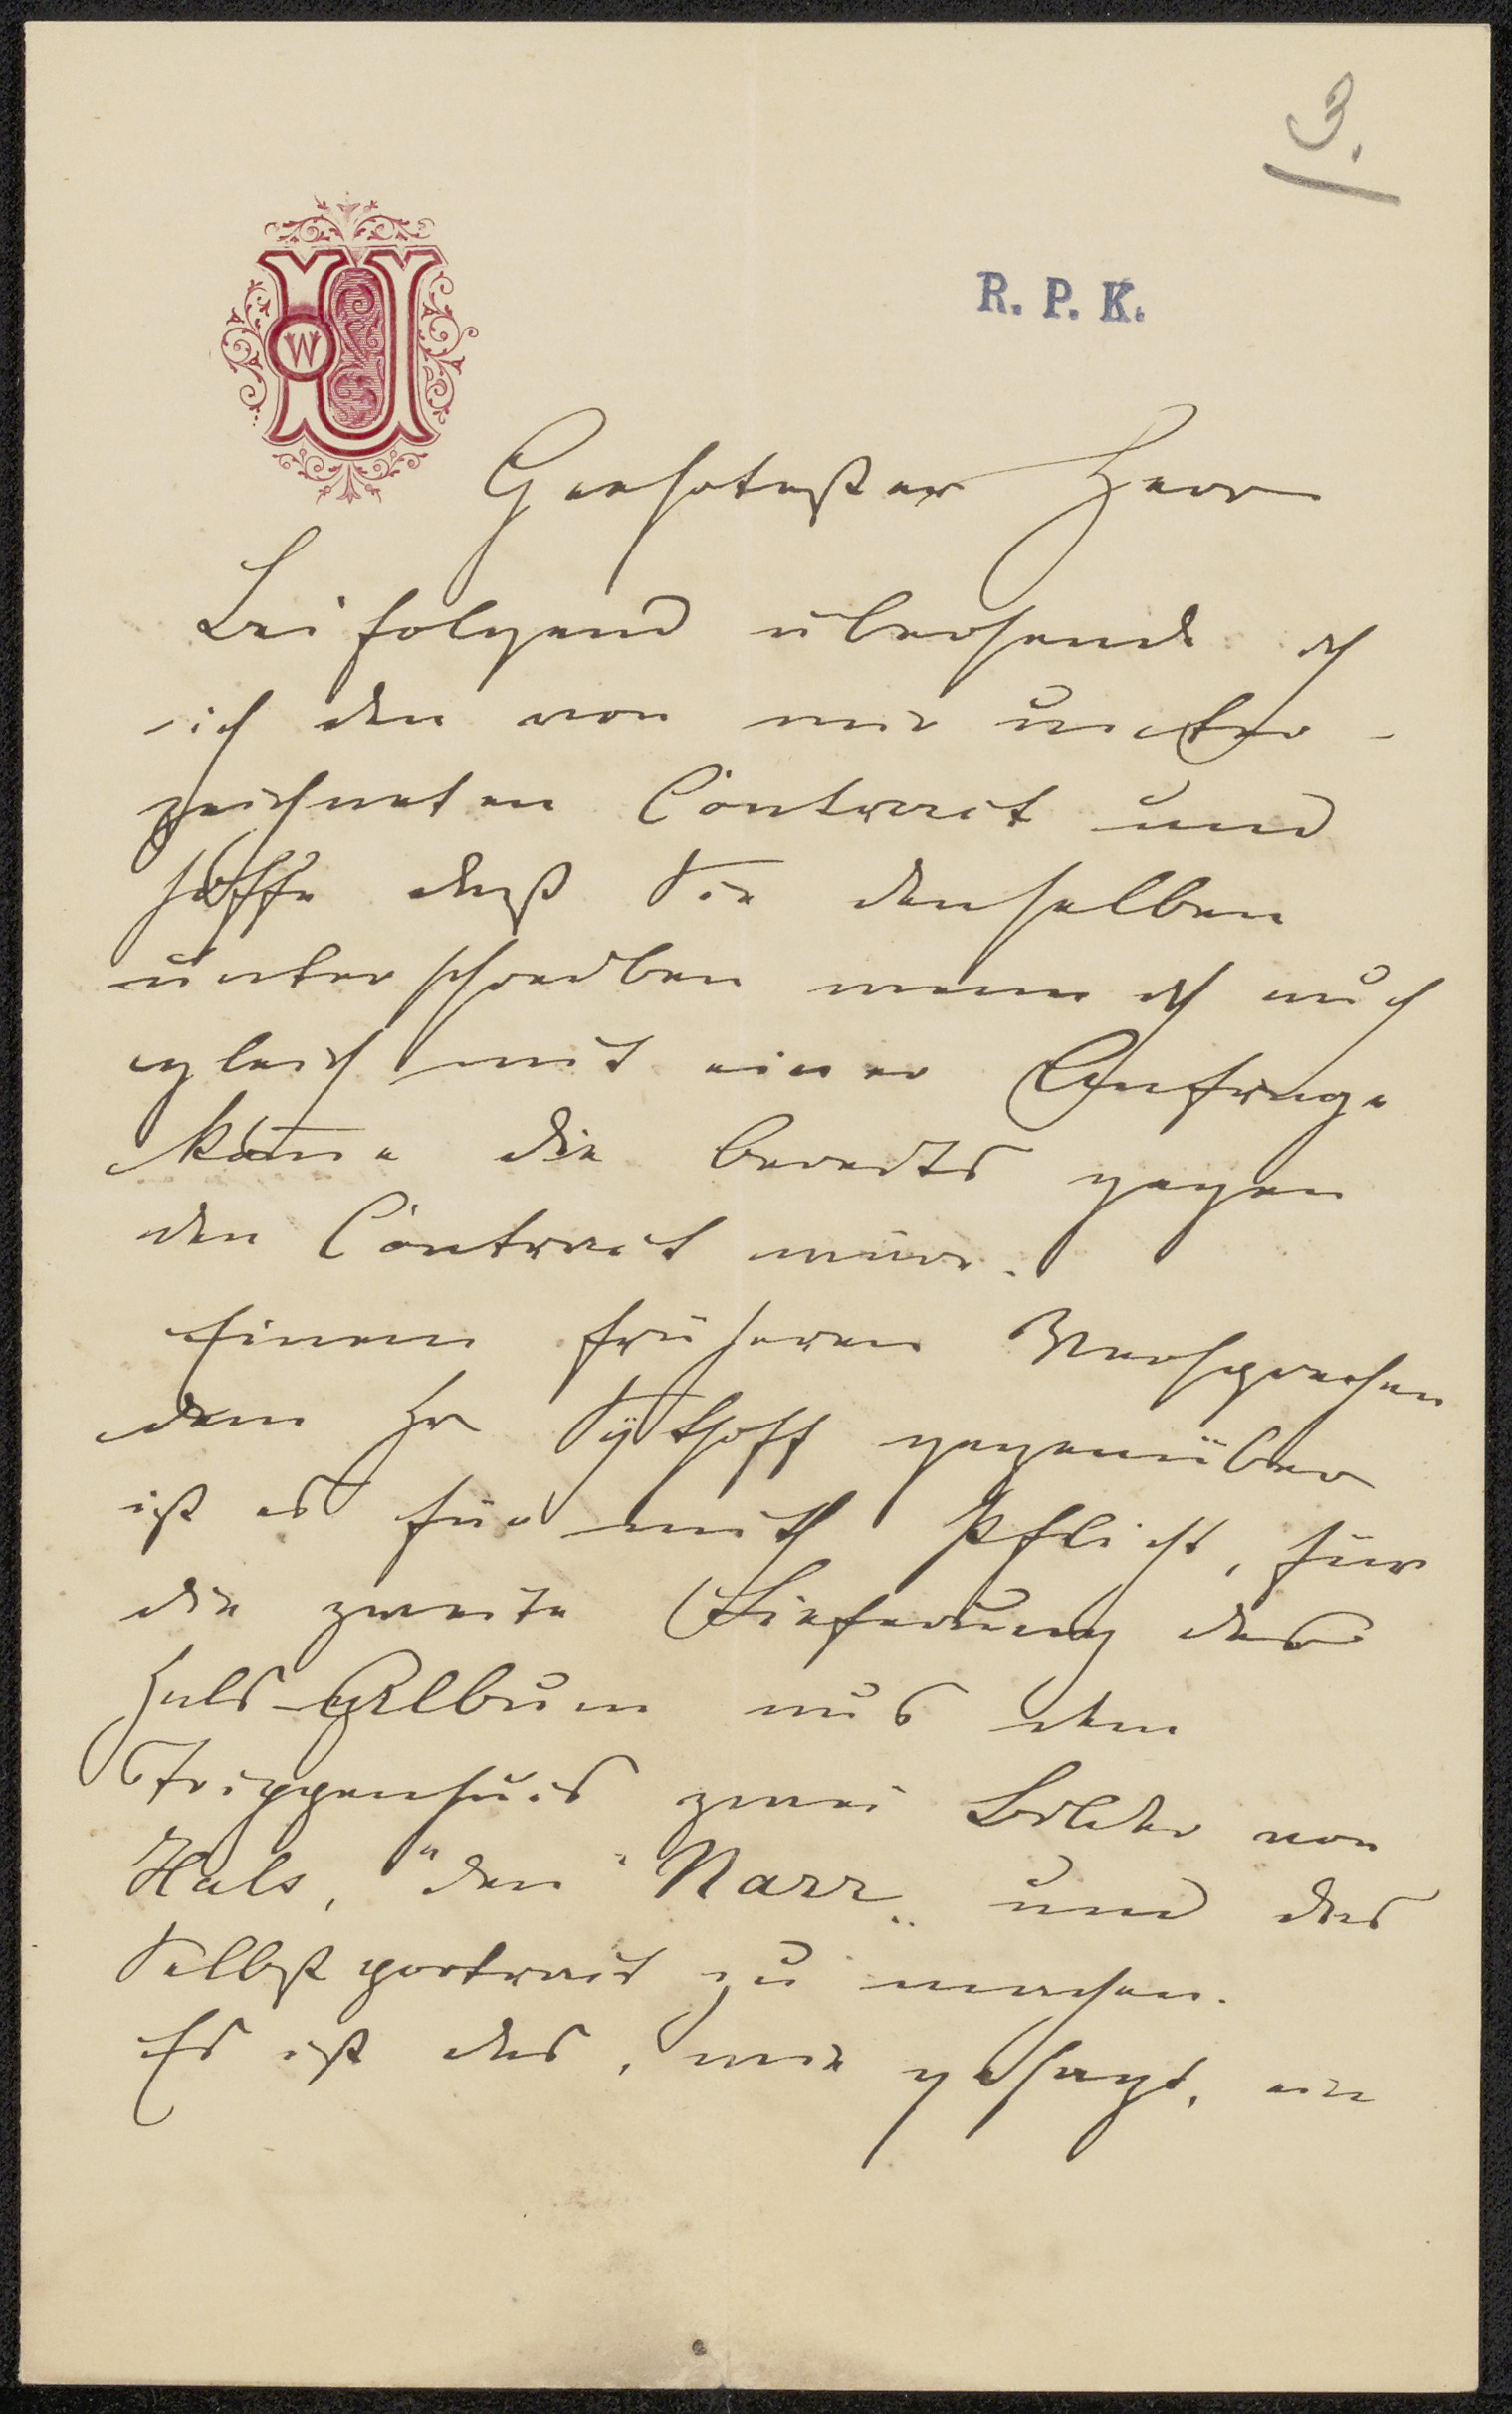 3.
R. P. K.
W
Geehrtester Herr
Beifolgend übersende ich
ich den von mir unter-
zeichneten Contract und
hoffe daß Sie denselben
unterschreiben wenn ich auch
gleich mit einer Anfrage
käme die bereits gegen
den Contract wäre.
Einem früheren Versprechen
dem Hr Sÿthoff gegenüber
ist es für mich Pflicht, für
die zweite Lieferung des
Hals-Album aus dem
Trippenhuis zwei Bilder von
Hals, "den" Narr„ und das
Selbstportrait zu machen.
Es ist das, wie gesagt, ein